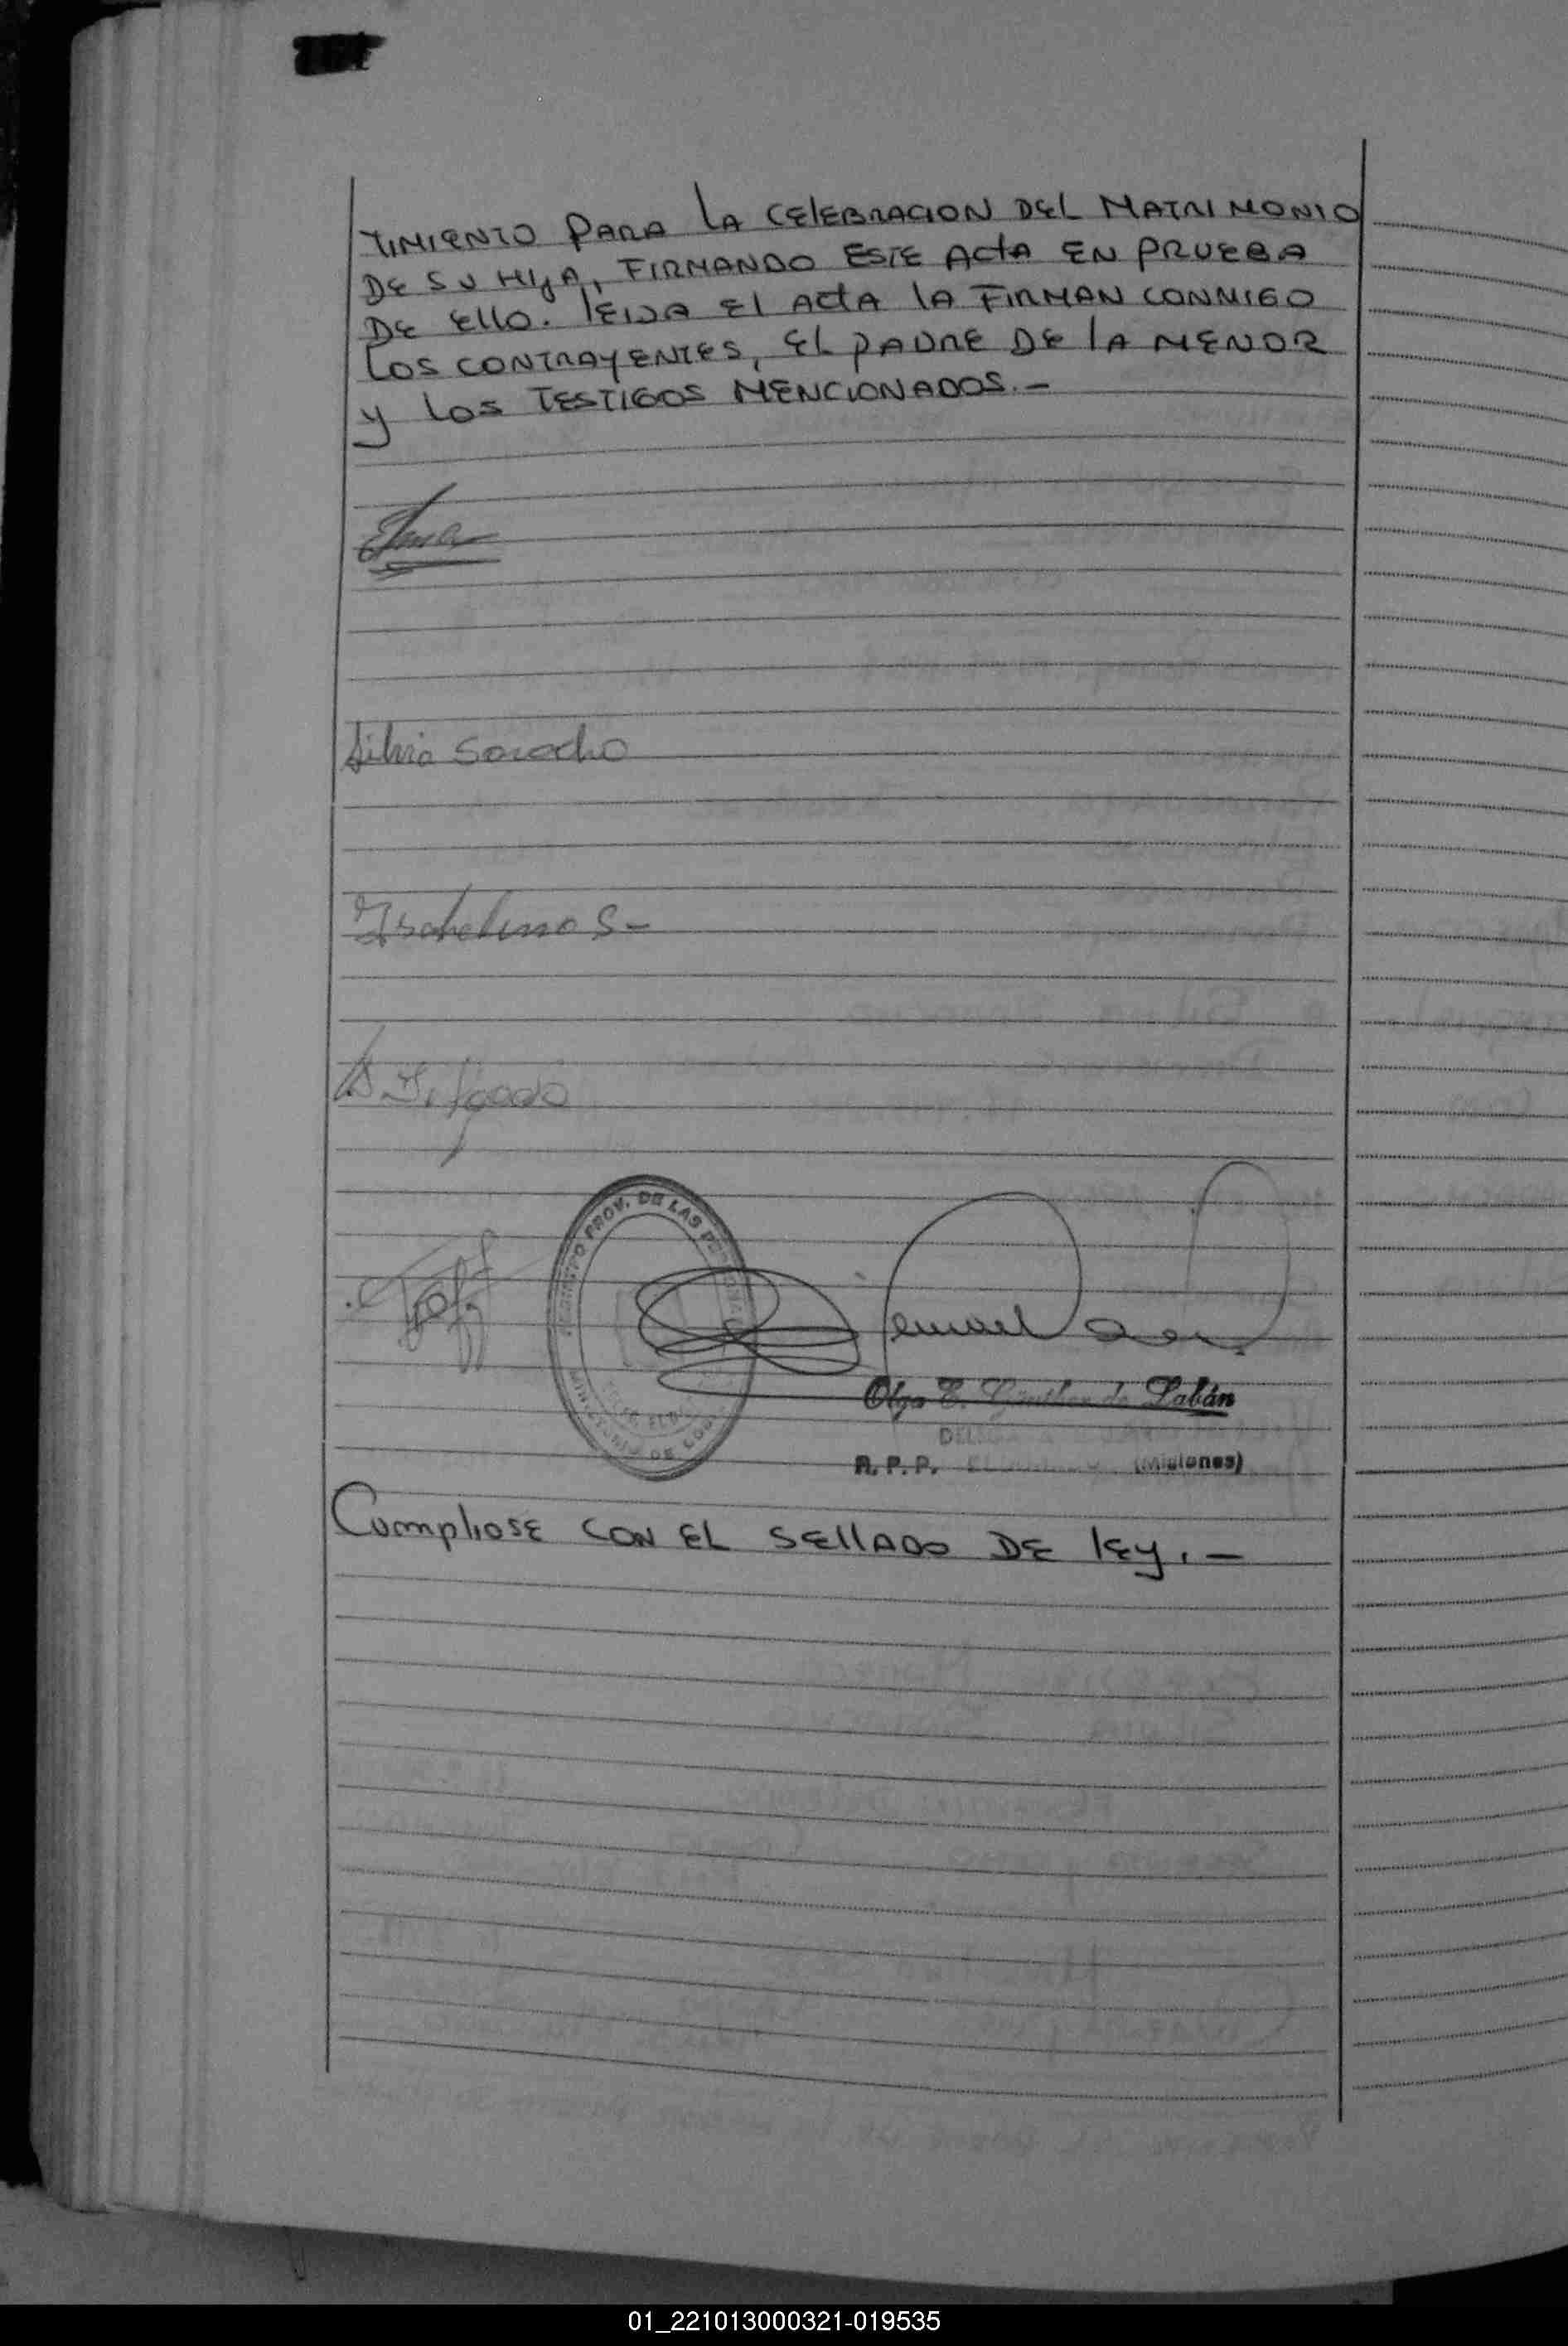 TIMIENTO PARA LA CELEBRACION DEL MATRIMONIO
DE SU HIJA, FIRMANDO ESTE ACTA EN PRUEBA
DE ELLO. LEIDA EL ACTA LA FIRMAN CONMIGO
LOS CONTRAYENTES, EL PADRE DE LA MENOR
Y LOS TESTIGOS MENCIONADOS.-
Silvia Soracho
S-
PROV. DE LAS
MINISTERIO DE
Olga E. Günther de Labán
R. P. P. (Misiones)
Cumpliose CON EL SELLADO DE LEY.-
01_221013000321-019535